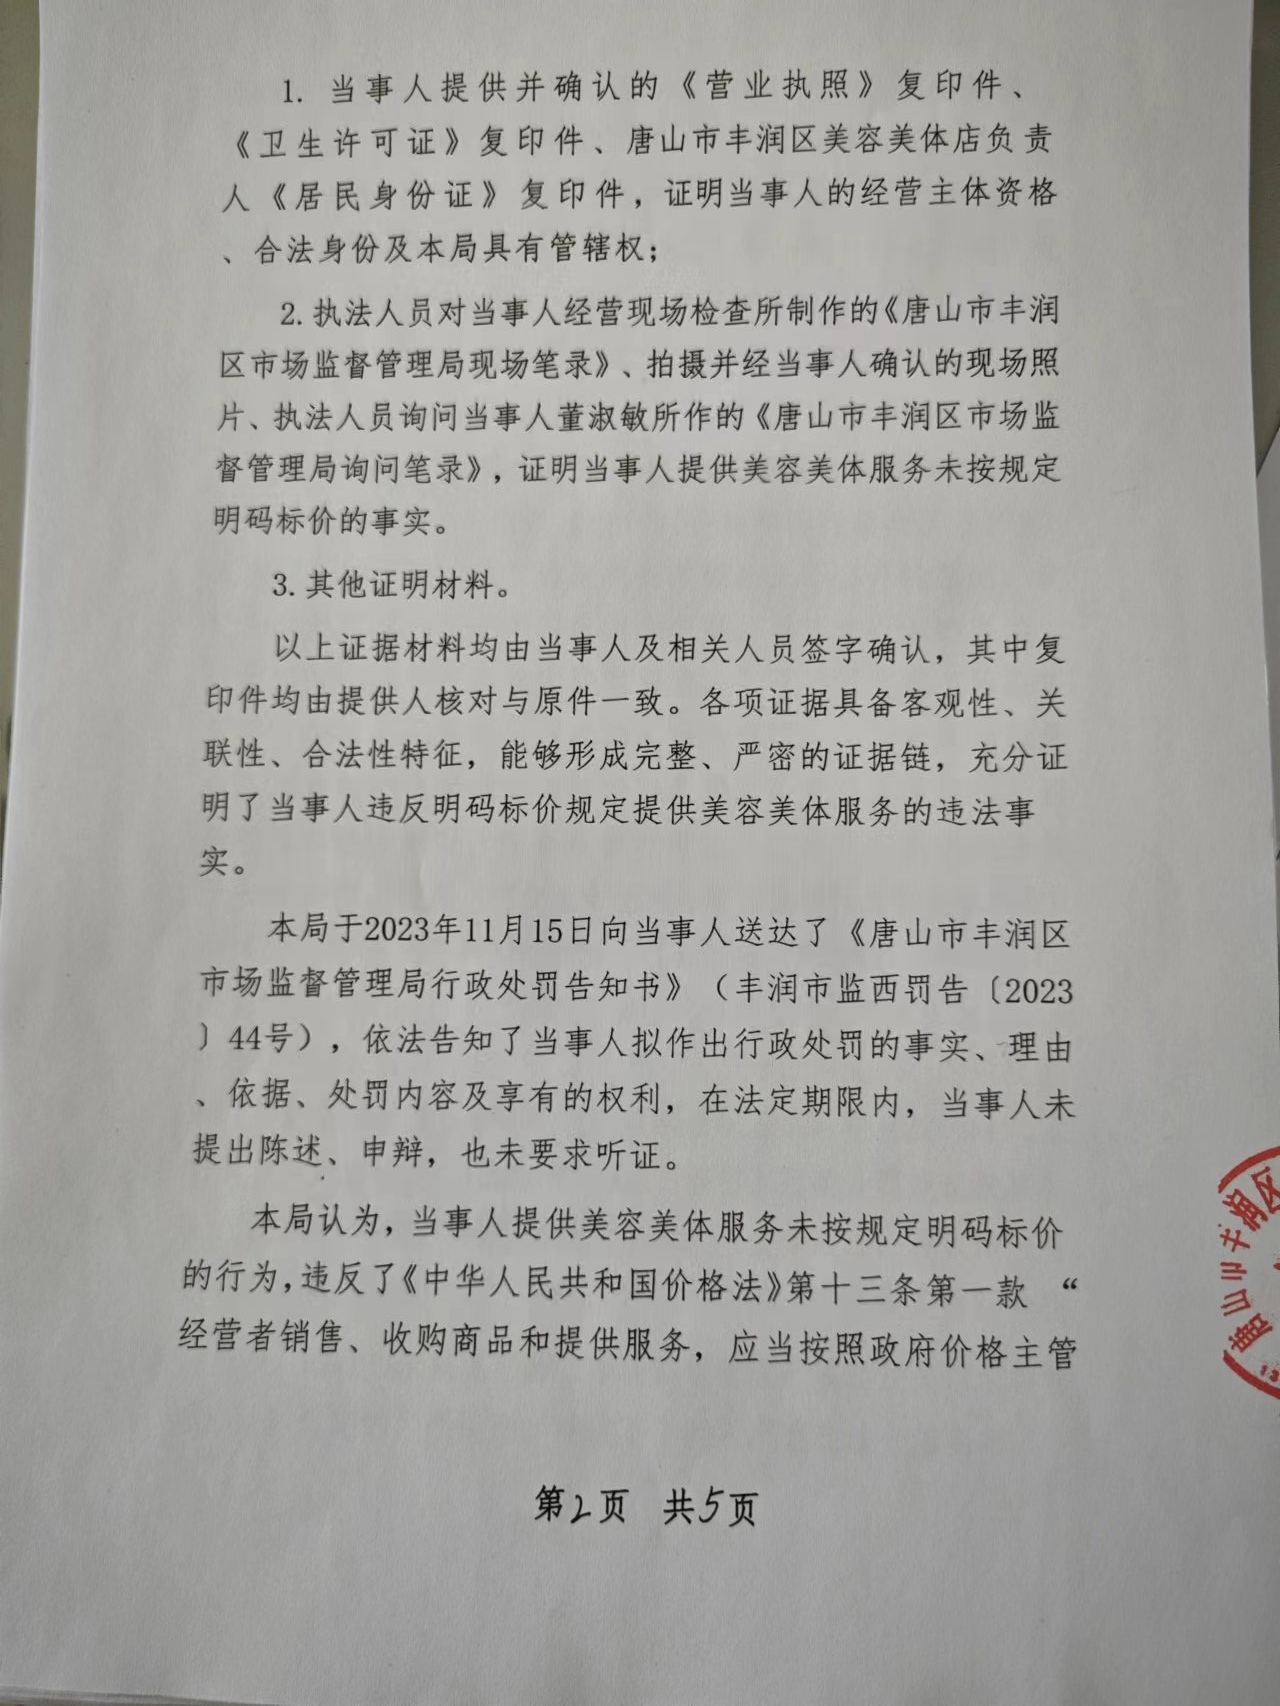 1. 当事人提供并确认的《营业执照》复印件、
《卫生许可证》复印件、唐山市丰润区美容美体店负责
人《居民身份证》复印件，证明当事人的经营主体资格
、合法身份及本局具有管辖权；
2.执法人员对当事人经营现场检查所制作的《唐山市丰润
区市场监督管理局现场笔录》、拍摄并经当事人确认的现场照
片、执法人员询问当事人董淑敏所作的《唐山市丰润区市场监
督管理局询问笔录》，证明当事人提供美容美体服务未按规定
明码标价的事实。
3.其他证明材料。
以上证据材料均由当事人及相关人员签字确认，其中复
印件均由提供人核对与原件一致。各项证据具备客观性、关
联性、合法性特征，能够形成完整、严密的证据链，充分证
明了当事人违反明码标价规定提供美容美体服务的违法事
实。
本局于2023年11月15日向当事人送达了《唐山市丰润区
市场监督管理局行政处罚告知书》（丰润市监西罚告〔2023
〕44号），依法告知了当事人拟作出行政处罚的事实、理由
、依据、处罚内容及享有的权利，在法定期限内，当事人未
提出陈述、申辩，也未要求听证。
本局认为，当事人提供美容美体服务未按规定明码标价
的行为，违反了《中华人民共和国价格法》第十三条第一款 “
经营者销售、收购商品和提供服务，应当按照政府价格主管
第2页 共5页
唐山市丰润区